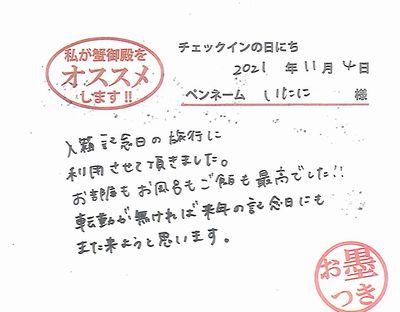 私が蟹御殿を
オススメ
します!!
チェックインの日にち
2021 年 11 月 4 日
ペンネーム いたに 様
入籍記念日の旅行に
利用させて頂きました。
お部屋もお風呂もご飯も最高でした!!
転勤が無ければ来年の記念日にも
また来ようと思います。
お墨
つき